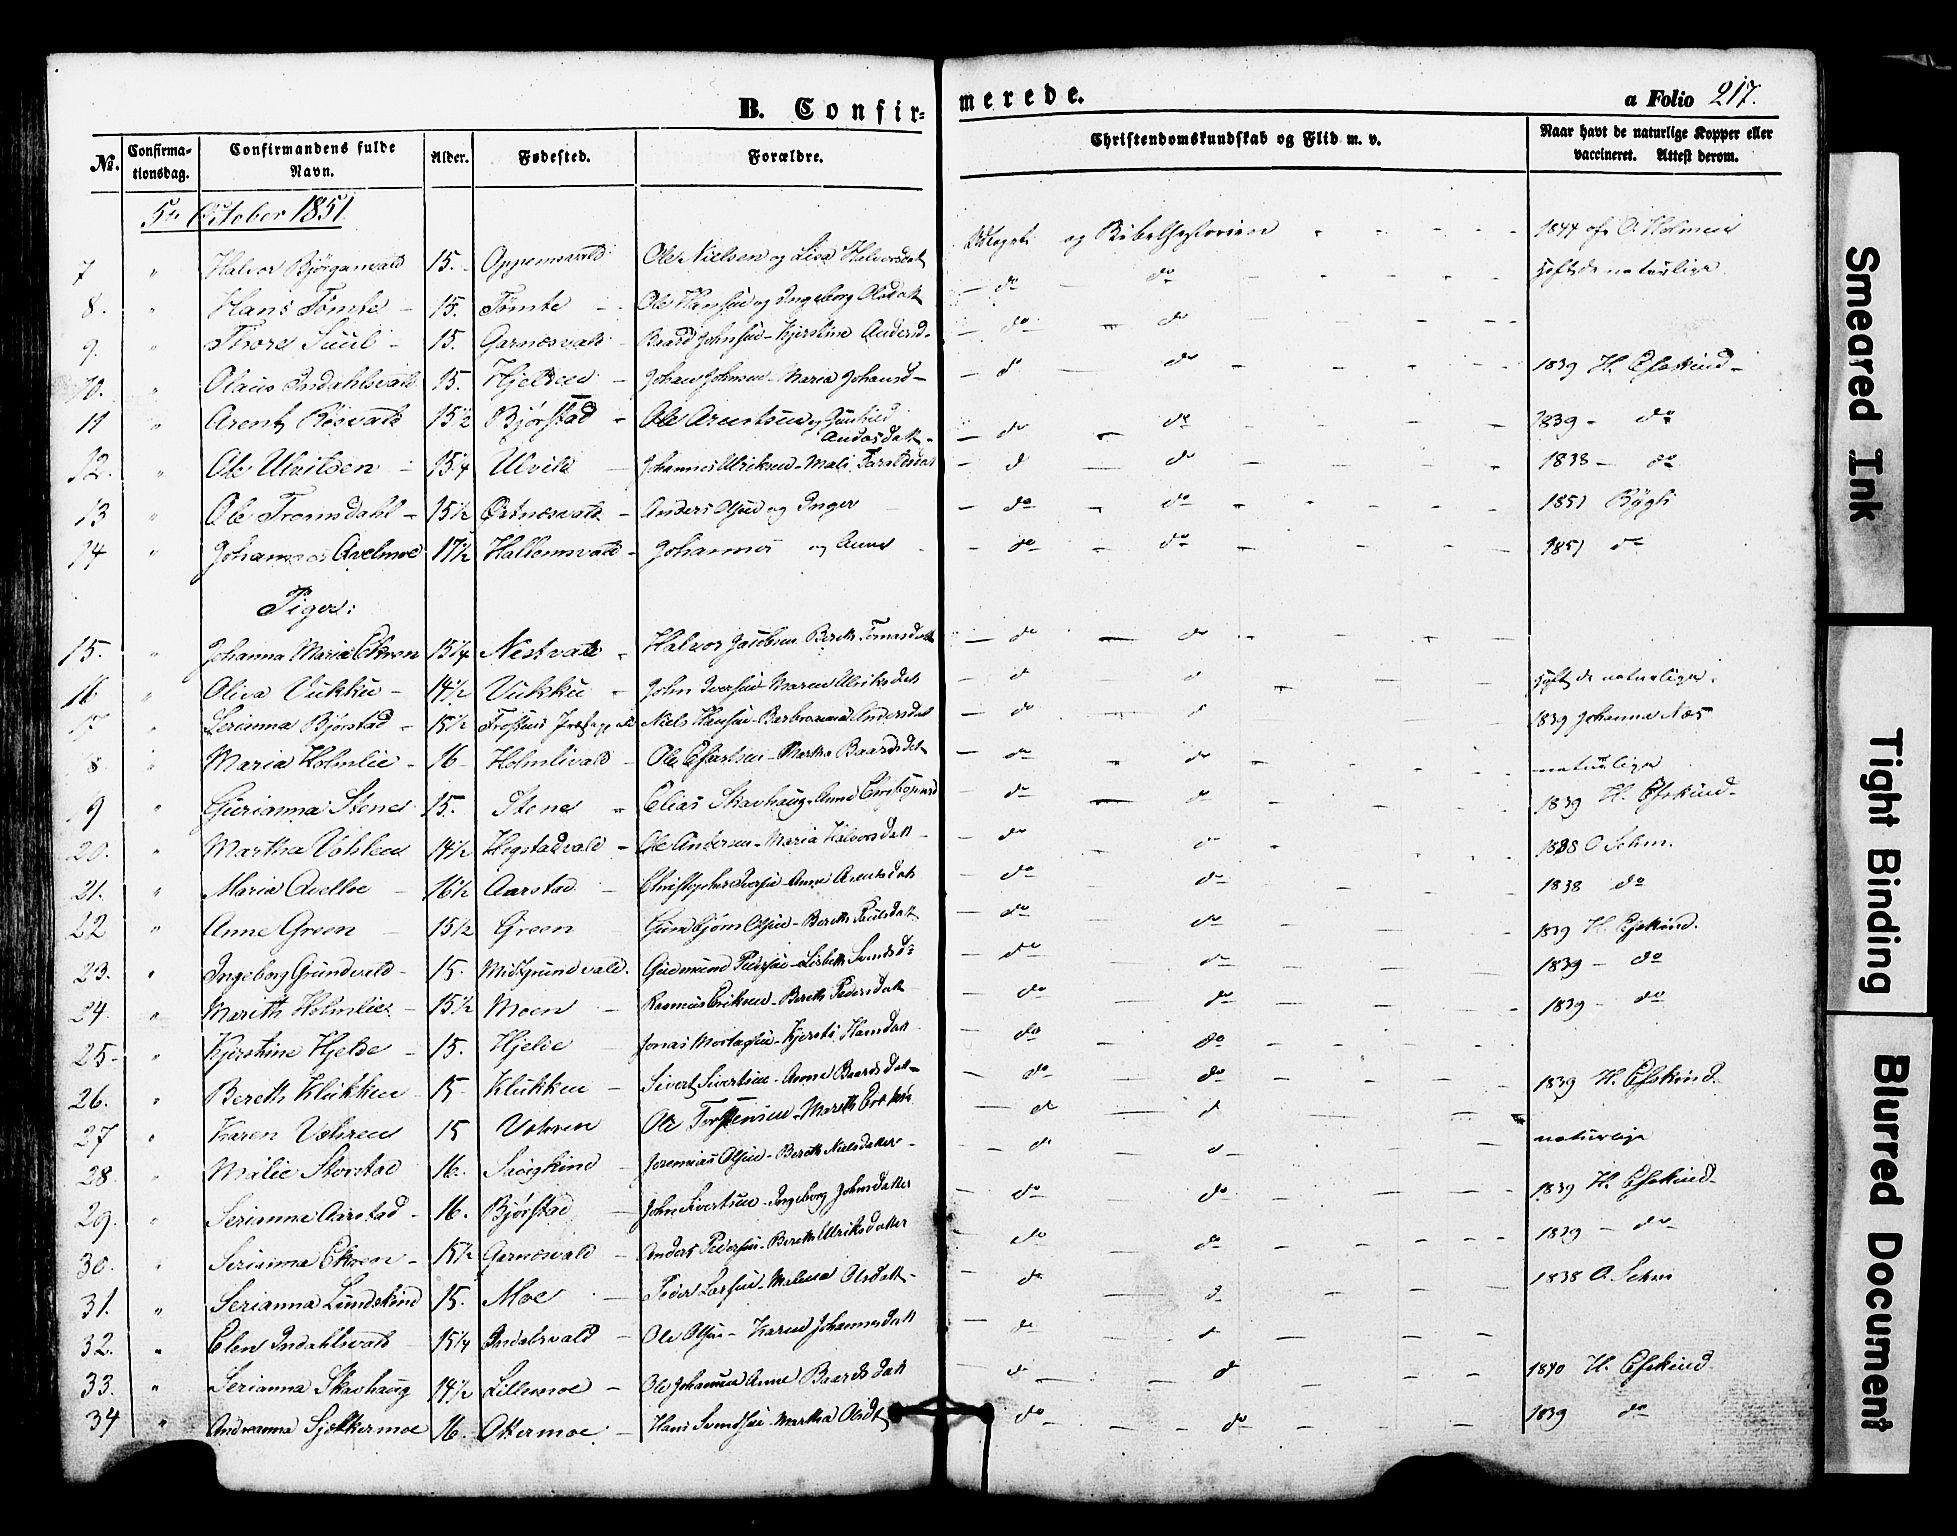 B. Confir- merede. a Folio 217.
No. Confirmationsdag. Confirmandens fulde Navn. Alder. Fødested. Forældre. Christendomskundskab og Flid m. v. Naar havt de naturlige Kopper eller vaccineret. Attest derom.
5te October 1851
7 " Halvor Bjørganvald 15. Oppemsvald Ole Nielsen og Lisa Halvorsdat og Bibelhistorien - - - - 1844 af O. Holmen
8. " Hans Tømte - 15. Tømte - Ole Hansen og Ingeborg Olsdatt - do - do - - - - naturlige
9. " Thore Suul - 15. Garnæsvald - Baard Johnsen - Kjerstine Andersd. - do - do - - - -
10. " Olaus Indahlsvald 15. Hjelden - Johan Johnsen - Maria Johansd - do - do - - - - 1839 H. Efskind -
11 " Arent Røsvald 15 1/2 Bjørstad - Ole Arentsen og Gunhild Andersdatt - do - do - - - - 1839 - do
12. " Ole Ulvilden - 15 1/4 Ulvild - Johannes Ulriksen - Mali Taraldsdat - do - do - - - - 1838 - do
13 " Ole Tromsdahl - 15 1/2 Østnæsvald - Anders Olsen og Inger - - do - do - - - - 1851 Bygh
14 " Johannes Axelmoe 17 1/2 Hallemsvald - Johannes og Anne - - do - do - - - - 1851 do
Piger:
15. " Johanna Maria Ekren 15 1/4 Nestvald - Halvor Jacobsen Bereth Tomasdatt - do - do - - - -
16 " Oliva Vukku - 14 1/2 Vukku - John Iversen - Maren Ulriksdatt - do do - - - naturlige
17 " Serianna Bjørstad - 15 1/2 Niels Hansen - Andersdat - do - do - - 1839 Johanna Næs
18 " Maria Holmlie - 16 - Holmlivald - Ole - Martha Baardsdat - do - do - - - - naturlige
19 " Gurianna Stene 15. Stene - Elias Skavhaug - Anne - do - do - - - - 1839 H. Efskind -
20. " Martha Vohlen 14 1/2 Hegstadvald - Ole Andersen - Maria Halvorsdatt - - do - do - - - - 1838 O. Schm.
21. " Maria Axelloe - 16 1/2 Aarstad - Christopher Iversen - Anne Arntsdatt - do - do - - - - 1838 do
22 " Anne Green - 15 1/2 Green - Gunbjørn Olsen - Bereth Paulsdatt - do - do - - - - 1839 H. Efskind.
23. " Ingeborg Grundvald - 15. Midtgrundvald. Gudmund Pedersen - Lisbeth Svendsd - do - do - - - - 1839 - do
24. " Mareth Holmlie - 15 1/2 Moen - Rasmus Eriksen - Bereth Pedersdatt - do - do - - - - 1839 - do
25 - " Kjerstine Hjelde - 15. Hjelde - Jonas Mortensen - Kjersti Hansdatt - do - do - - - -
26. " Bereth Klukken - 15 - Klukken - Sivert Sivertsen - Anne Baardsdatt - do - do - - - - 1839 H. Efskind.
27 " Karen Vohren 15 Vohren Ole Torstensen - Mareth - do - do - - - naturlige
28. " Malie Storstad 16. - Jeremias Olsen - Bereth Nielsdatter - - do - do - - - - 1839 H. Efskind -
29. " Serianna Aarstad - 16. Bjørstad - John Sivertsen - Ingeborg Johnsdatter - do - do - - - - 1839 - do
30. " Serianna Ekren - 15 1/2 Garnesvald - Anders Pedersen - Bereth Ulriksdatter - do - do - - - - 1838 O. Schm
31. " Serianna Lundskind 15. Moe - Peder Larsen - Malena Olsdatt - - do - do - - - -
32. " Elen Indahlsvald 15 1/4 Indalsvald - Ole Olsen - Karen Johannesdatt - do - do - - - -
33. " Serianna Skavhaug 14 1/2 Lillemoe - Ole Johansen Anne Baardsdatt - do - do - - - - 1840 H. Efskind.
34 " Andreanna Sjøkkermoe 16. Okermoe - Hans Svendsen - Martha Olsdt - do - do - - - - 1839 do
Smeared Ink
Tight Binding
Blurred Document